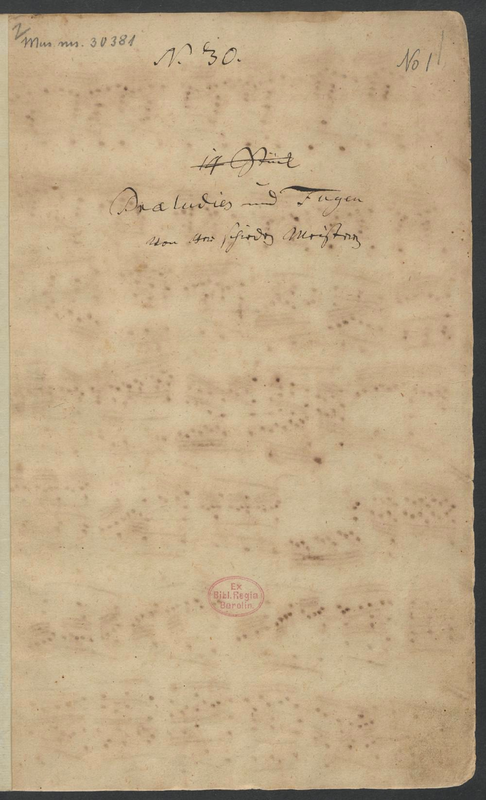 2
Mus. ms. 30381
N. 30.
No 1
14 Stück
Praeludien und Fugen
von verschieden Meistern
Ex
Bibl. Regia
Berolin.